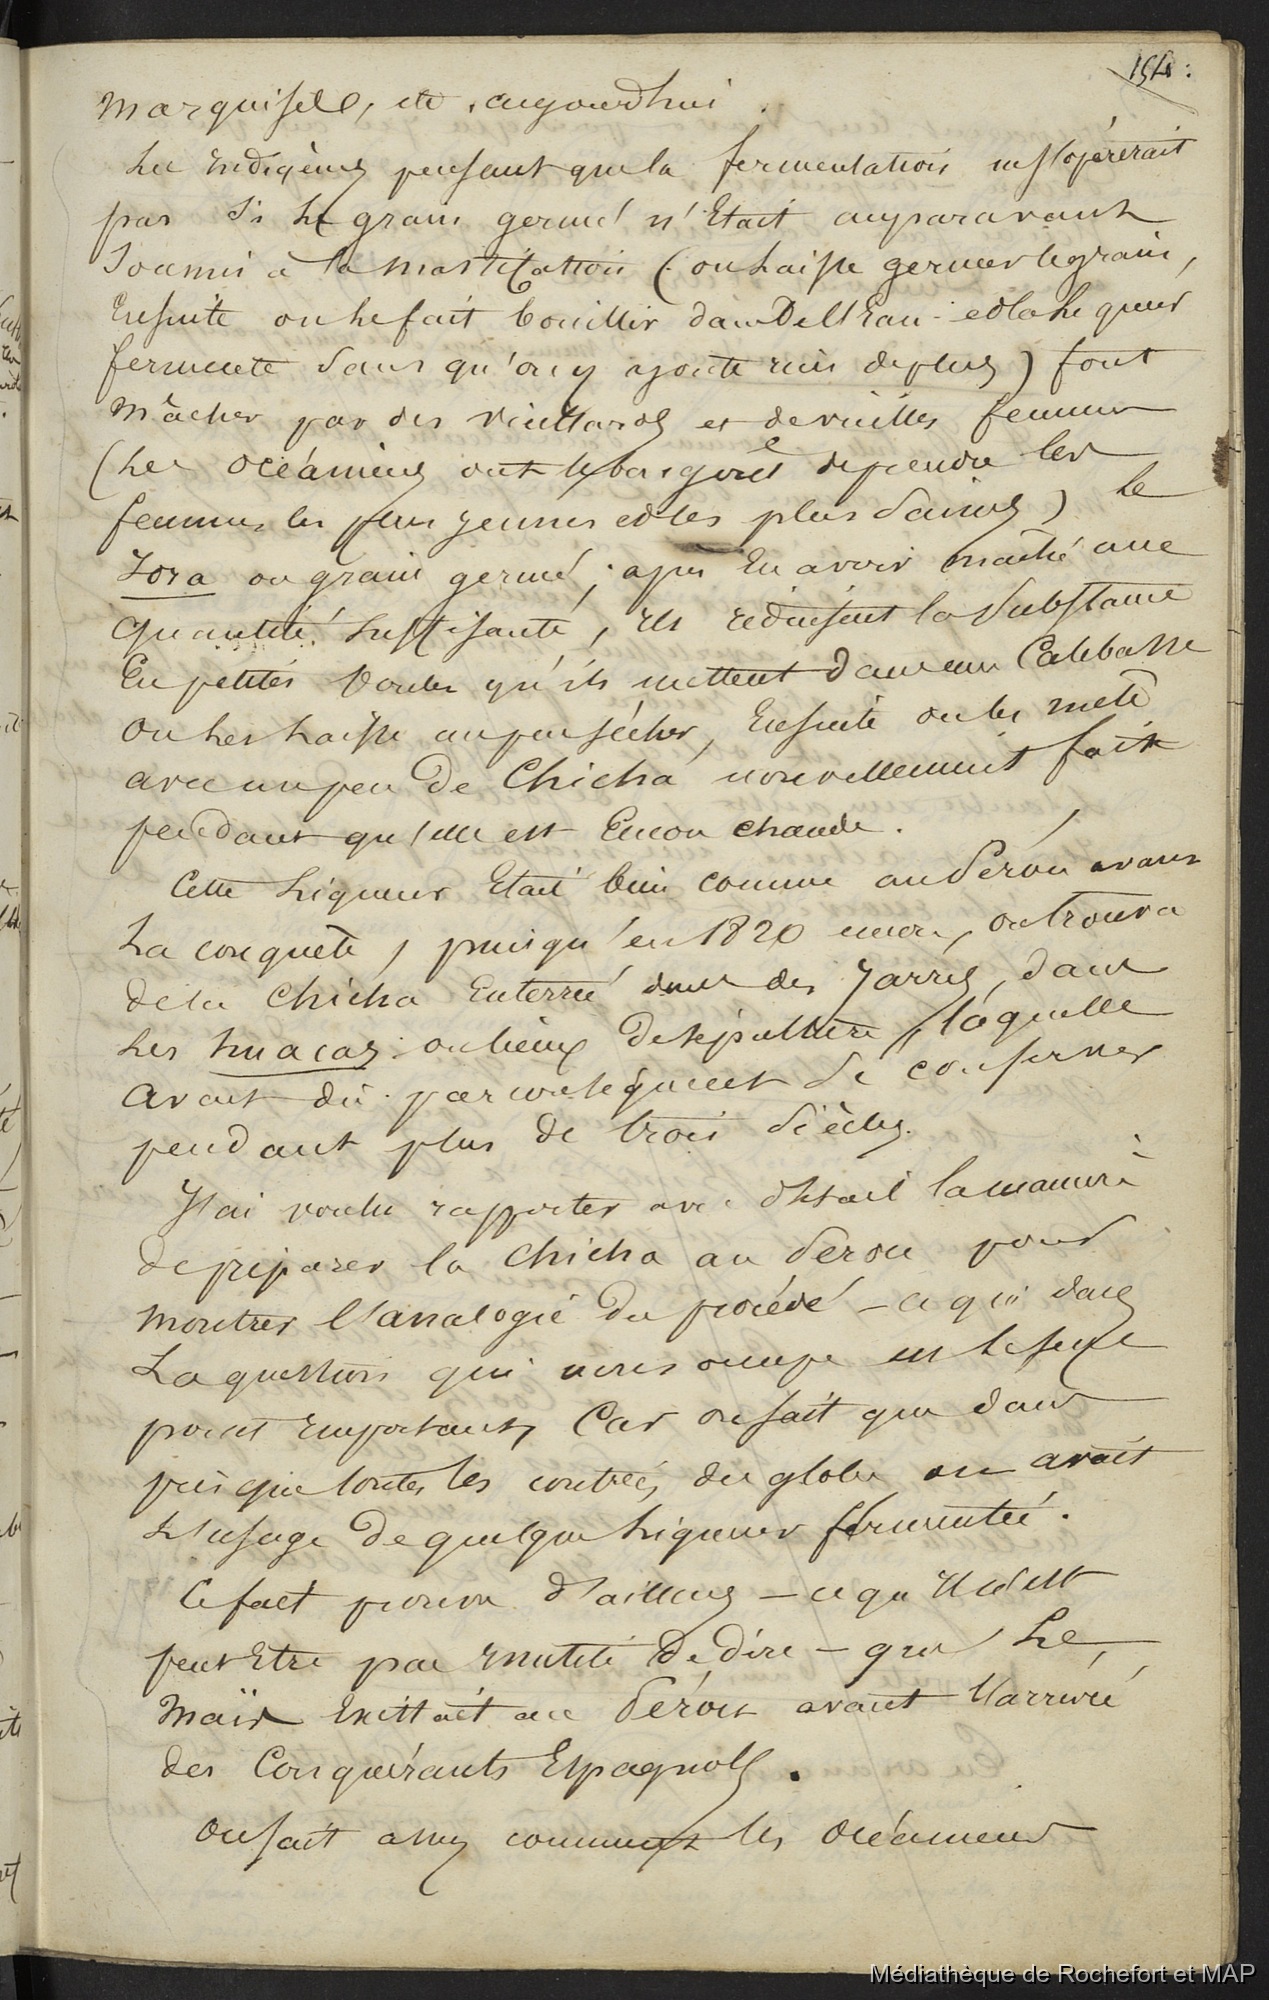 154.
Marquises, etc, aujourd'hui.
Les indigènes pensant que la fermentation ne s'opérerait
pas si le grain germé n'était auparavant
soumis à la mastication (on laisse germer le grain,
Ensuite on le fait bouillir dans de l'Eau - et la liqueur
fermente sans qu'on y ajoute rien de plus) font
mâcher par des vieillards et de vieilles femmes
(les océaniens ont le bon goût de prendre les
femmes les plus jeunes et les plus saines) le
Jora ou grain germé; après en avoir mâché une
quantité suffisante, ils réduisent la substance
En petites boules qu'ils mettent dans une Calebasse
on les laisse un peu sécher, Ensuite on les mêle
avec un peu de Chicha nouvellement fait
pendant qu'elle est Encore chaude.
Cette liqueur Etait bien connue au Pérou avant
la conquête, puisqu'en 1820 encore, on trouva
de la Chicha Enterrée dans des Jarres, dans
les huacas ou lieux de sépulture, laquelle
avait dû par conséquent se conserver
pendant plus de trois siècles.
J'ai voulu rapporter avec détail la manière
de préparer la Chicha au Pérou pour
montrer l'analogie du procédé - ce qui dans
la question qui nous occupe est le seul
point important, Car on sait que dans
presque toutes les contrées du globe on avait
l'usage de quelque liqueur fermentée.
Ce fait prouve d'ailleurs - ce qu'il n'est
peut Etre pas inutile de dire - que le
Maïs Existait au Pérou avant l'arrivée
des Conquérants Espagnols.
On sait assez comment les océaniens
Médiathèque de Rochefort et MAP